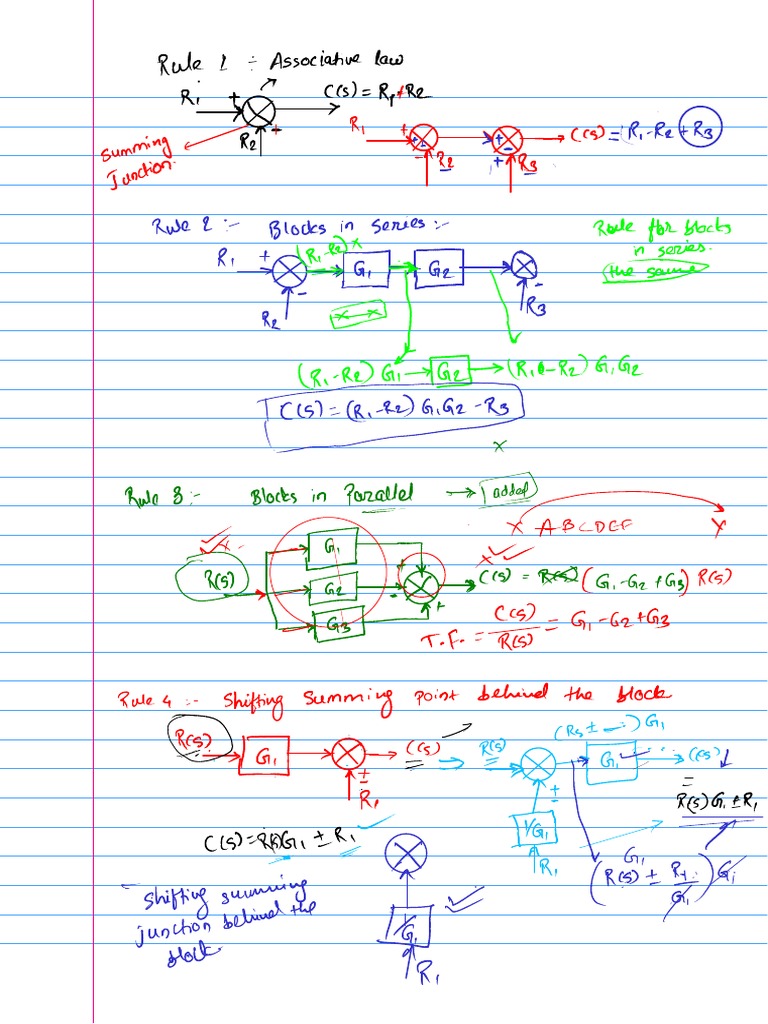 Rule 1 ÷ Associative law
R1 + C(s) = R1 + R2
R2 -
Summing Junction
R1 + + - + - C(s) = R1 - R2 + R3
- R2 + R3
Rule 2 :- Blocks in series :-
Rule for blocks
in series.
the same
R1 + (R1-R2) x G1 G2
- R2
- R3
x x
(R1-R2) G1 G2 (R1-R2) G1G2
C(s) = (R1-R2) G1G2 - R3
x
Rule 3 :- Blocks in Parallel → added
x A-B-C-D-E-F x
R(s) G1 + C(s) = R(s) (G1 - G2 + G3) R(s)
G2 -
G3 +
T.F. = C(s)/R(s) = G1 - G2 + G3
Rule 4 :- Shifting Summing point behind the block
R(s) G1 C(s) ⇒ R(s) G1 C(s)
± R1
(Rs ± ) G1
±
1/G1
R1
R(s)G1 ± R1
C(s) = R(s)G1 ± R1
G1
(R(s) ± R1/G1) G1
- Shifting summing
junction behind the
block.
1/G1
R1